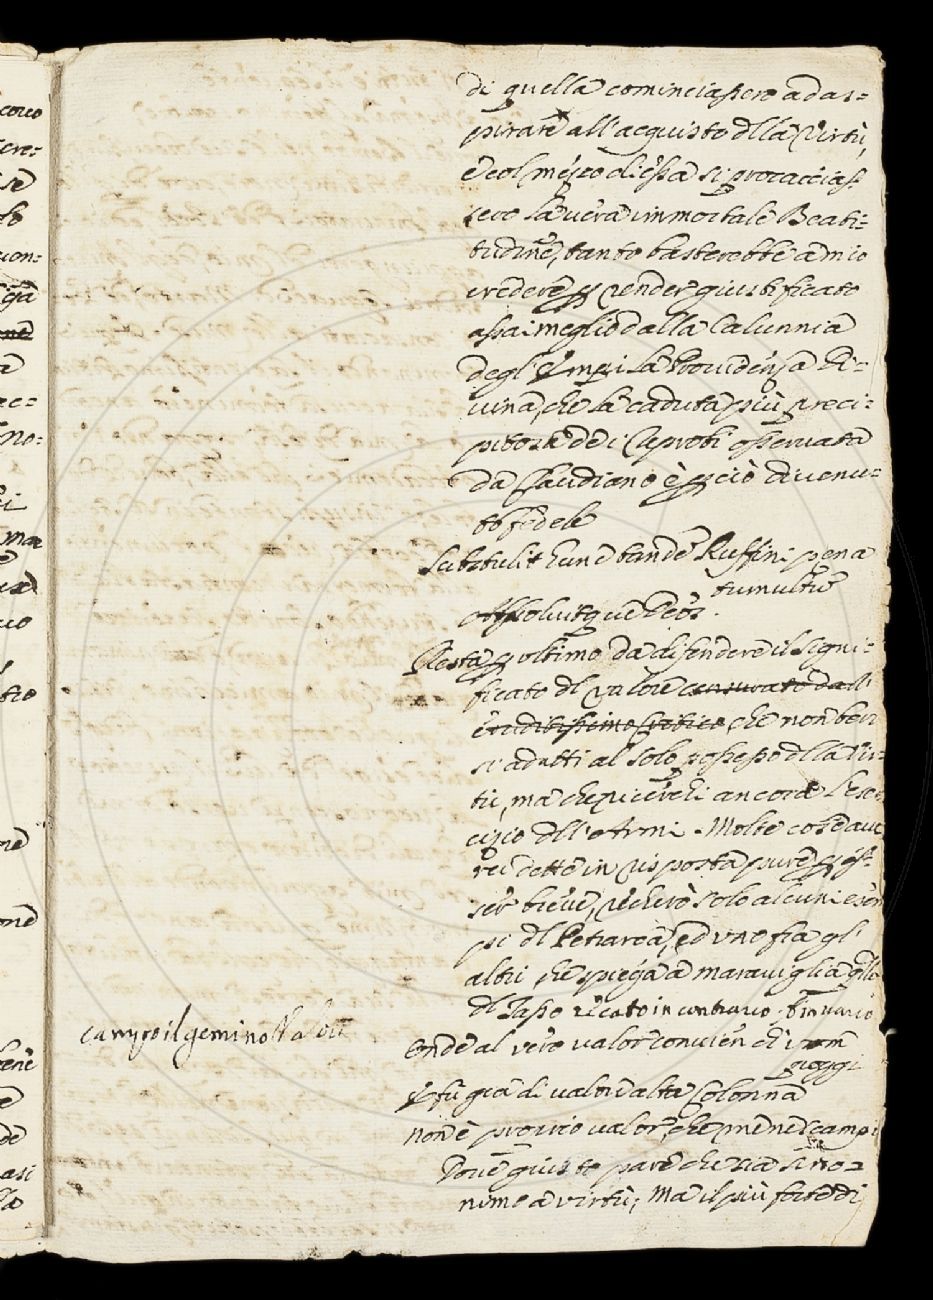 di quella cominciassero ad as=
pirare all'acquisto dlla Virtù,
e col mezzo di essa si procaccias
sero la vera immortale Beati=
tudine, tanto basterebbe a mio
credere p render giustificato
assai meglio dalla Calunnia
degl'Empi la Providenza Di=
uina, che la caduta più preci=
pitosa de i Reprobi osseruata
da Claudiano è p ciò diuenu=
to fedele
Abstulit hunc tandē Ruffini pena
tumultū
Absoluitque Deos.
Resta p ultimo da difendere il signi=
ficato dl valore censurato dall'
eruditissimo Critico, che non ben
si adatti al solo possesso dlla Vir=
tù, ma che ricerchi ancora l'eser
cizio dll'Armi. Molte cose aue
rei dette in risposta pure p es=
ser breue, recherò solo alcuni esem
pi dl Petrarca, ed uno fra gl'
altri che spiega a marauiglia qllo
dl Tasso recato in contrario
canzo il gemino
Onde al vero valor conuien ch'uom
poggi
E fu già di valor alta Colonna
non è proprio valor, che me ne scampi
Doue giusto pare che sia sino=
nimo a virtù; ma il più forte di